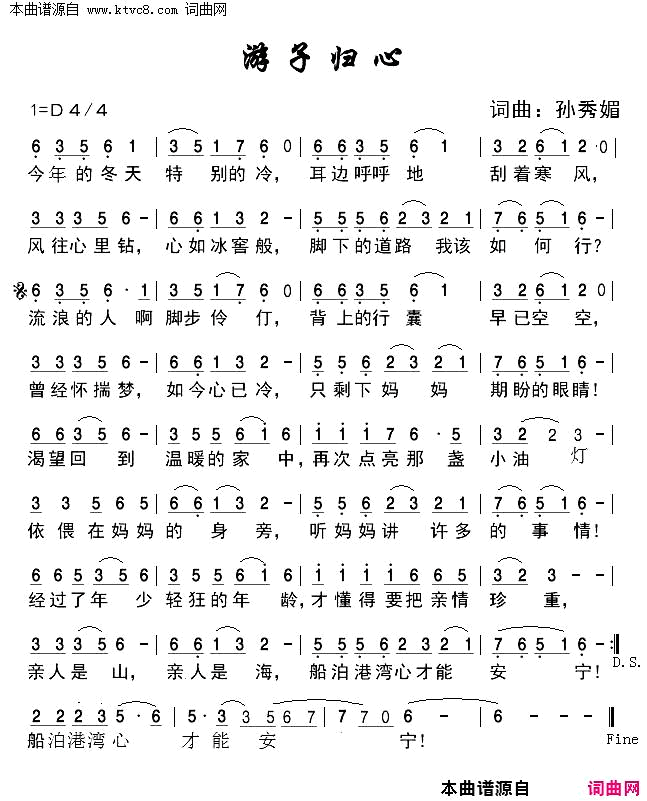 本曲谱源自 www.ktvc8.com 词曲网
游子归心
1=D 4/4 词曲：孙秀媚
6 3 5 6 1 | 3 5 1 7 6 0 | 6 6 3 5 6 1 | 3 2 6 1 2·0 |
今年的冬天 特别的冷，耳边呼呼地 刮着寒风，
3 3 3 5 6 - | 6 6 1 3 2 - | 5 5 5 6 2 3 2 1 | 7 6 5 1 6 - |
风往心里钻，心如冰窖般，脚下的道路 我该 如何行？
6 3 5 6 · 1 | 3 5 1 7 6 0 | 6 6 3 5 6 1 | 3 2 6 1 2 0 |
流浪的人 啊 脚步伶仃，背上的行囊 早已空空，
3 3 3 5 6 - | 6 6 1 3 2 - | 5 5 6 2 3 2 1 | 7 6 5 1 6 - |
曾经怀揣梦，如今心已冷，只剩下妈妈 期盼的眼睛！
6 6 3 5 - | 3 5 5 6 1 6 | 1 1 1 7 6 · 5 | 3 2 2 3 - |
渴望回到 温暖的家中，再次点亮那盏 小油灯
3 3 5 6 5 | 6 6 1 3 2 - | 5 5 5 6 2 3 2 1 | 7 6 5 1 6 - |
依偎在妈妈的身旁，听妈妈讲 许多的事情！
6 6 5 3 5 6 | 3 5 5 6 1 6 | 1 1 1 1 6 6 5 | 3 2 3 - - |
经过了年少轻狂的年龄，才懂得要把亲情珍重，
3 3 3 5 6 - | 6 6 1 3 2 - | 5 5 5 6 2 3 2 1 | 7 6 5 1 6 - :|
亲人是山，亲人是海，船泊港湾心才能 安 宁！ D.S.
2 2 2 3 5 · 6 | 5 · 3 3 5 6 7 | 7 7 0 6 - | 6 - - - |
船泊港湾心 才能安 宁！ Fine
本曲谱源自 词曲网